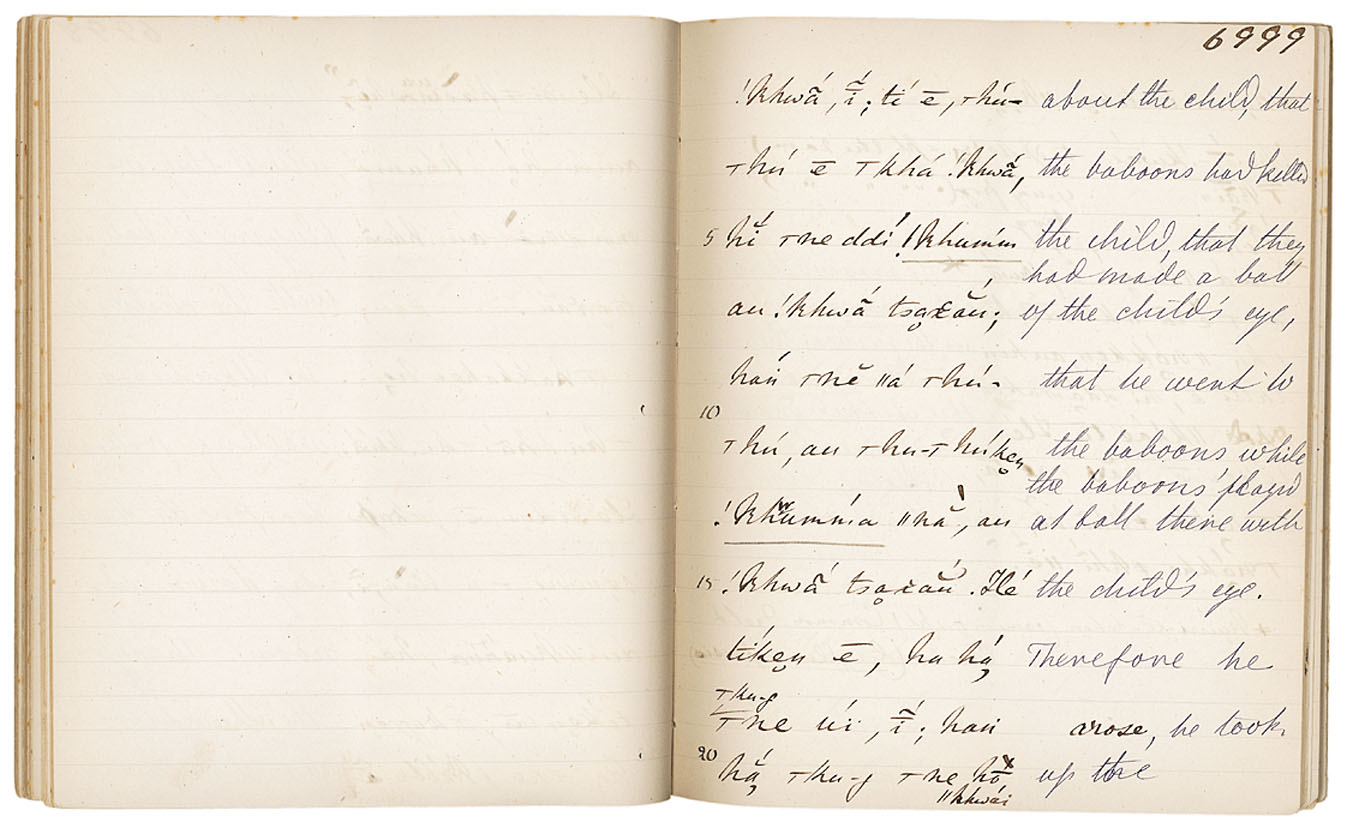 6999
!khwã́, ĩ́; tí ē, ⊤hú- about the child, that
⊤hú ē ⊤khá !khwã́, the baboons had killed
5 hĭ́ ⊤ne ddí !khumm the child, that they
had made a ball
au !khwã́ tsa̤xáu; of the child's eye,
haṅ ⊤nĕ ǁá ⊤hú- that he went to
10
⊤hú, au ⊤hu-⊤húke̤n the baboons while
the baboons played
!khumma ǁnắ, au at ball there with
15 !khwã́ tsa̤xáu. Hé the child's eye.
tíke̤n ē, ha há̤ Therefore he
⊤ku-g
⊤ne úi, ĩ́; haṅ arose, he took
20 há̤ ⊤ku-g ⊤ne hō ˣ up the
ǁkhwái